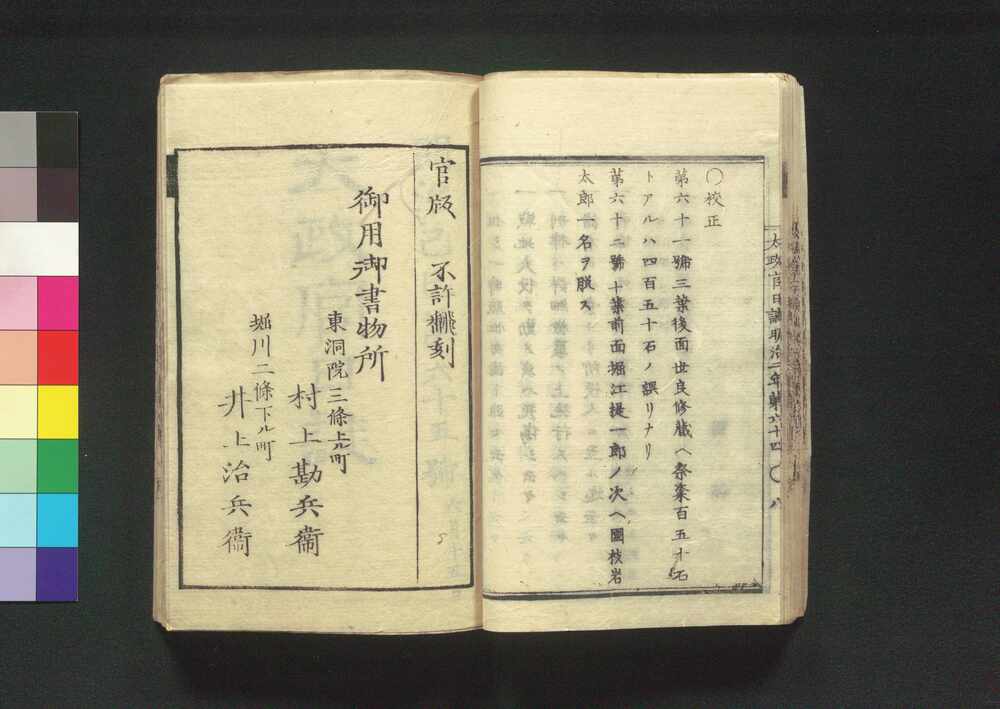 太政官日誌明治二年第六十四 〇 八
〇校正
第六十一號三葉後面世良修藏ヘ祭粢百五十石
トアルハ四百五十石ノ誤リナリ
第六十二號十葉前面堀江提一郎ノ次ヘ國枝岩
太郎一名ヲ脱ス
官版 不許翻刻
御用御書物所
東洞院三條上ル町
村上勘兵衞
堀川二條下ル町
井上治兵衞